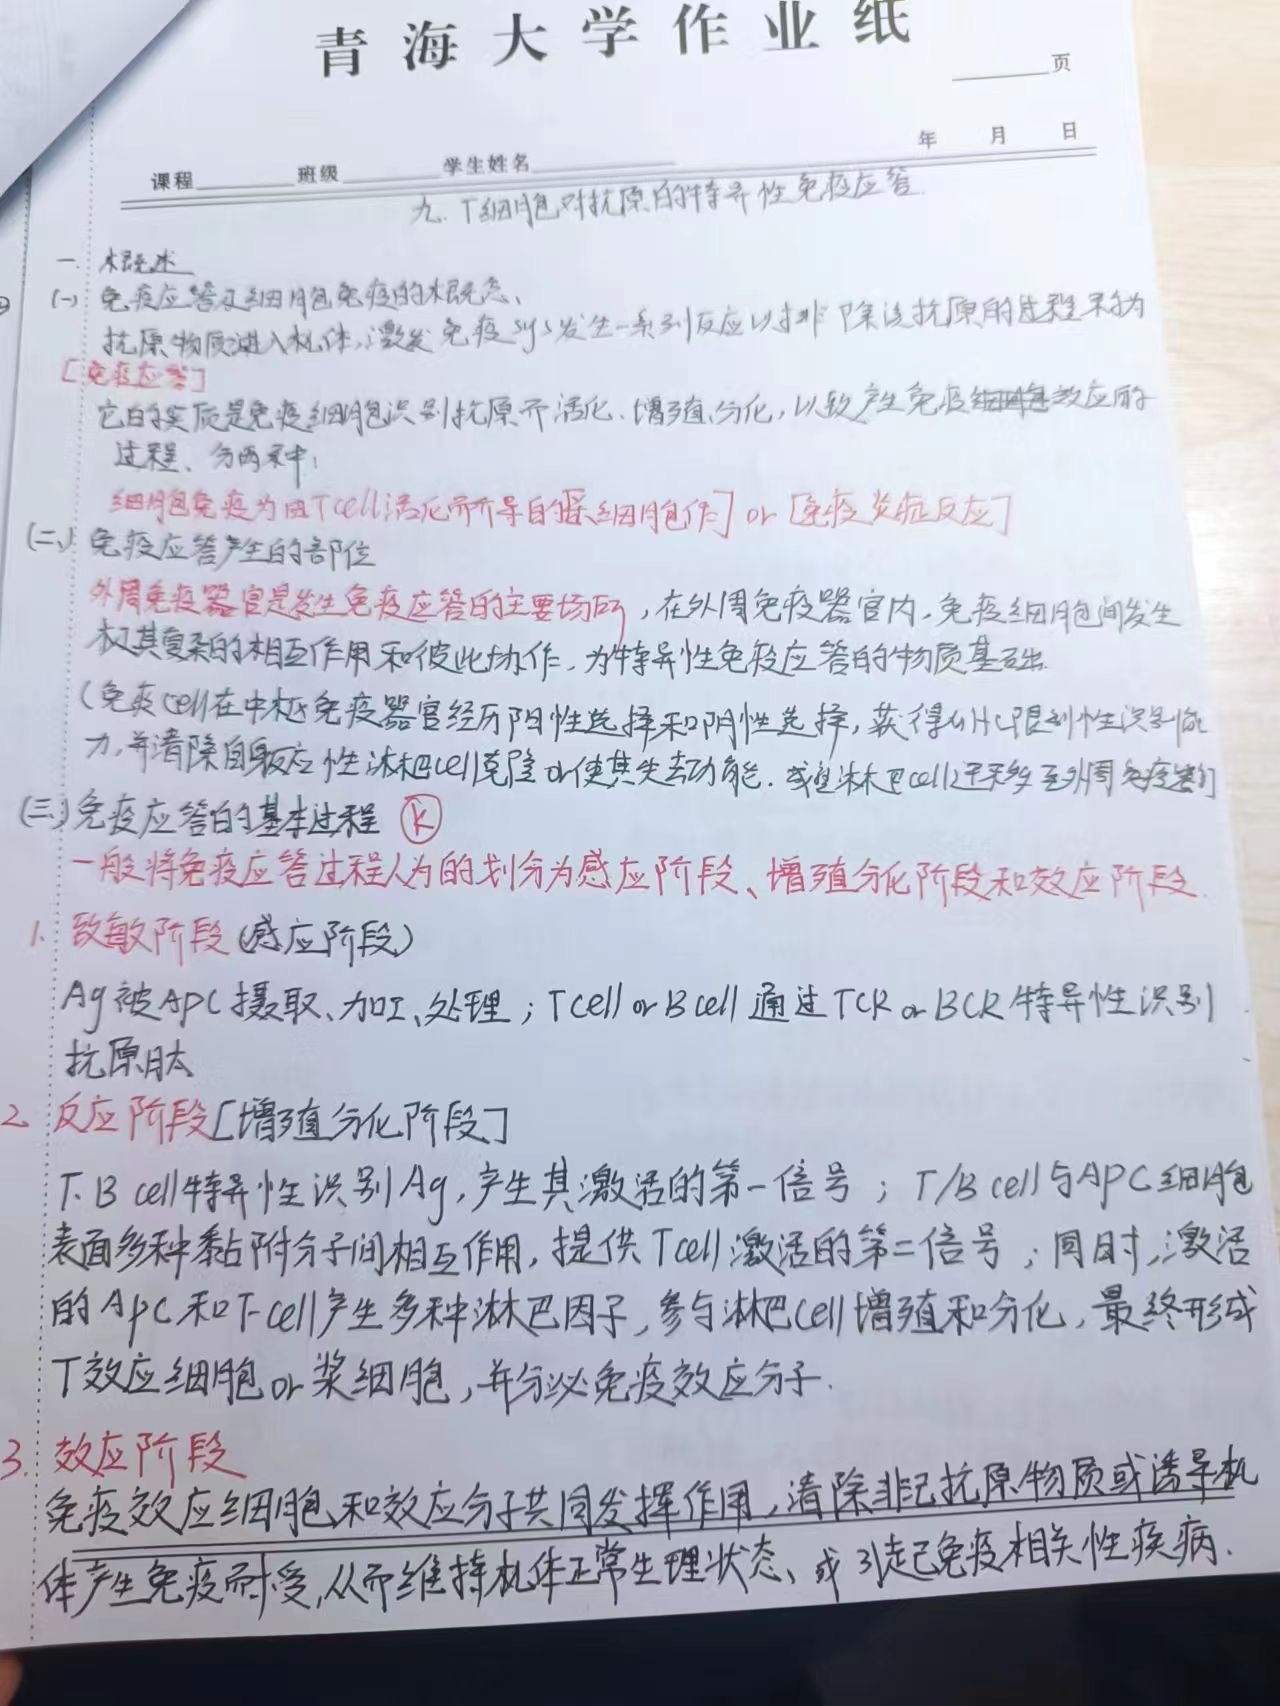 青海大学作业纸
页
年 月 日
课程 班级 学生姓名
九. T细胞对抗原的特异性免疫应答.
一. 概述
(一) 免疫应答及细胞免疫的概念、
抗原物质进入机体,激发免疫sys发生一系列反应以排除该抗原的过程称为
[免疫应答]
它的实质是免疫细胞识别抗原而活化、增殖、分化,以致产生免疫效应的
过程、分两种:
细胞免疫为由Tcell活化所介导的 or [免疫炎症反应]
(二) 免疫应答产生的部位
外周免疫器官是发生免疫应答的主要场所,在外周免疫器官内,免疫细胞间发生
极其复杂的相互作用和彼此协作,为特异性免疫应答的物质基础.
(免疫cell在中枢免疫器官经历阳性选择和阴性选择,获得MHC限制性识别能
力,并清除自身反应性淋巴cell克隆or使其失去功能. 淋巴cell迁移至外周免疫
(三) 免疫应答的基本过程 K
一般将免疫应答过程人为的划分为感应阶段、增殖分化阶段和效应阶段.
1. 致敏阶段(感应阶段)
Ag被APC摄取、加工、处理;Tcell or Bcell 通过TCR or BCR特异性识别
抗原肽
2. 反应阶段[增殖分化阶段]
T.B cell特异性识别Ag,产生其激活的第一信号;T/B cell与APC细胞
表面多种黏附分子间相互作用,提供Tcell激活的第二信号;同时,激活
的APC和T-cell产生多种淋巴因子,参与淋巴cell增殖和分化,最终形成
T效应细胞or浆细胞,并分泌免疫效应分子.
3. 效应阶段
免疫效应细胞和效应分子共同发挥作用,清除非己抗原物质或诱导机
体产生免疫耐受,从而维持机体正常生理状态、或引起免疫相关性疾病.